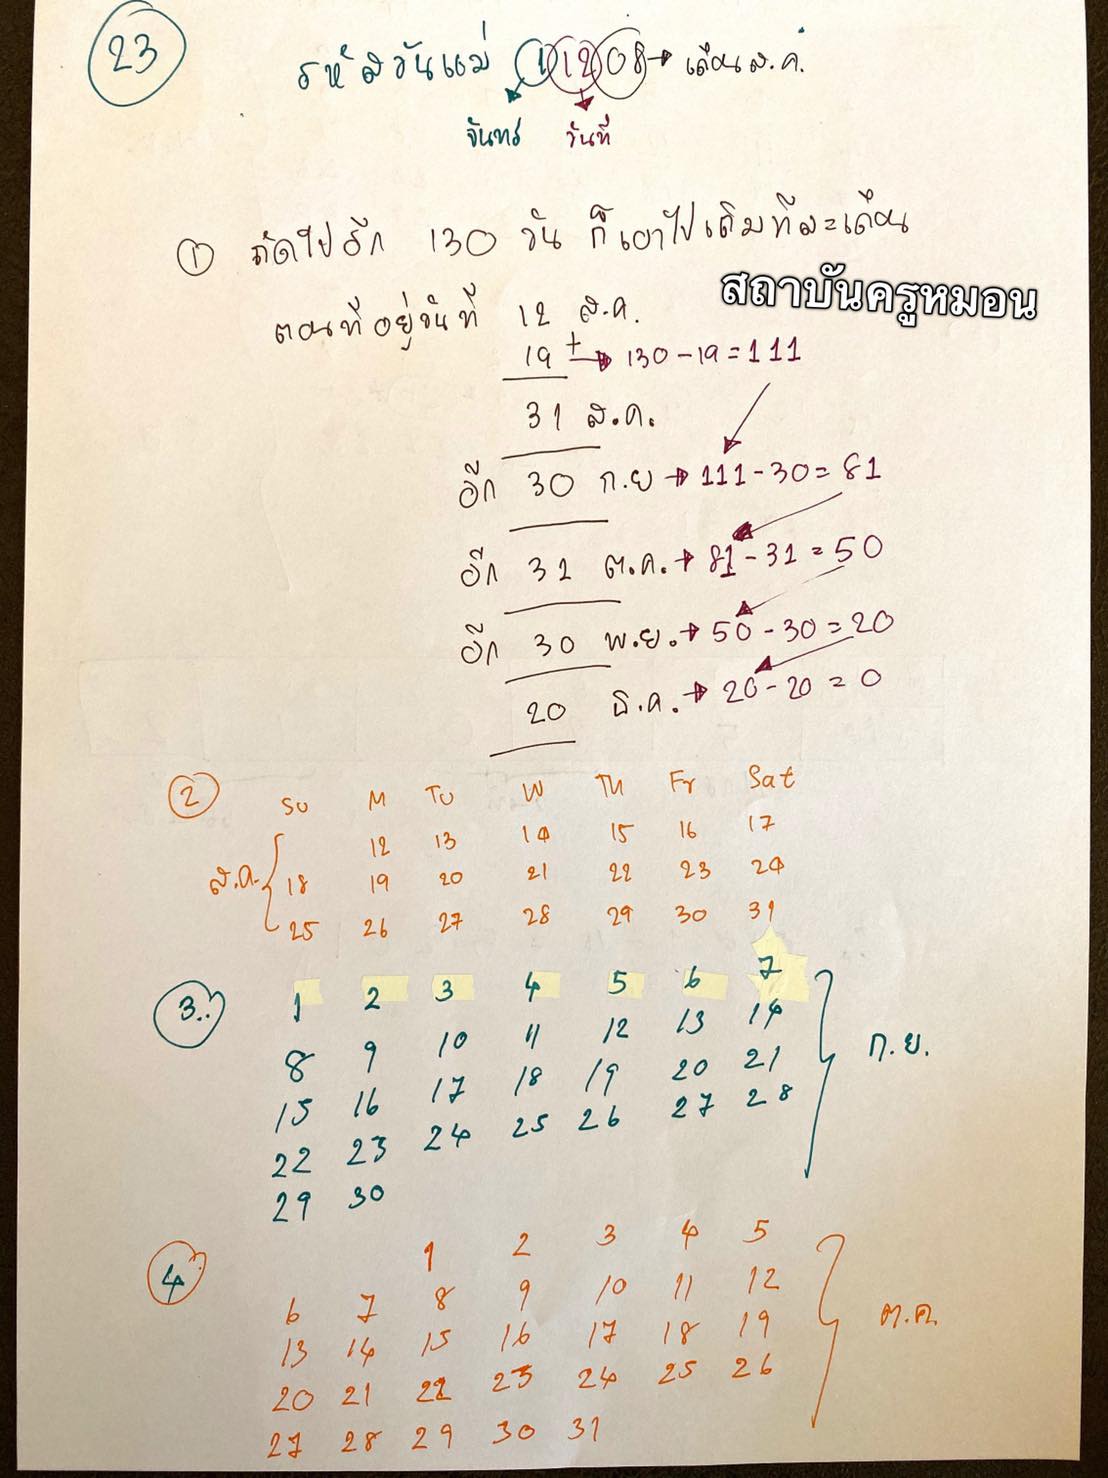 23
รหัสวันแม่ 11208 → เดือน ส.ค.
จันทร์ วันที่
① ถัดไปอีก 130 วัน ก็เอาไปเติมทีละเดือน
สถาบันครูหมอน
ตอนที่อยู่วันที่ 12 ส.ค.
19 + → 130 - 19 = 111
31 ส.ค.
อีก 30 ก.ย → 111 - 30 = 81
อีก 31 ต.ค. → 81 - 31 = 50
อีก 30 พ.ย. → 50 - 30 = 20
20 ธ.ค. → 20 - 20 = 0
② Su M Tu W Th Fr Sat
12 13 14 15 16 17
ส.ค. 18 19 20 21 22 23 24
25 26 27 28 29 30 31
3.. 1 2 3 4 5 6 7
8 9 10 11 12 13 14 ก.ย.
15 16 17 18 19 20 21
22 23 24 25 26 27 28
29 30
4 1 2 3 4 5
6 7 8 9 10 11 12 ต.ค.
13 14 15 16 17 18 19
20 21 22 23 24 25 26
27 28 29 30 31